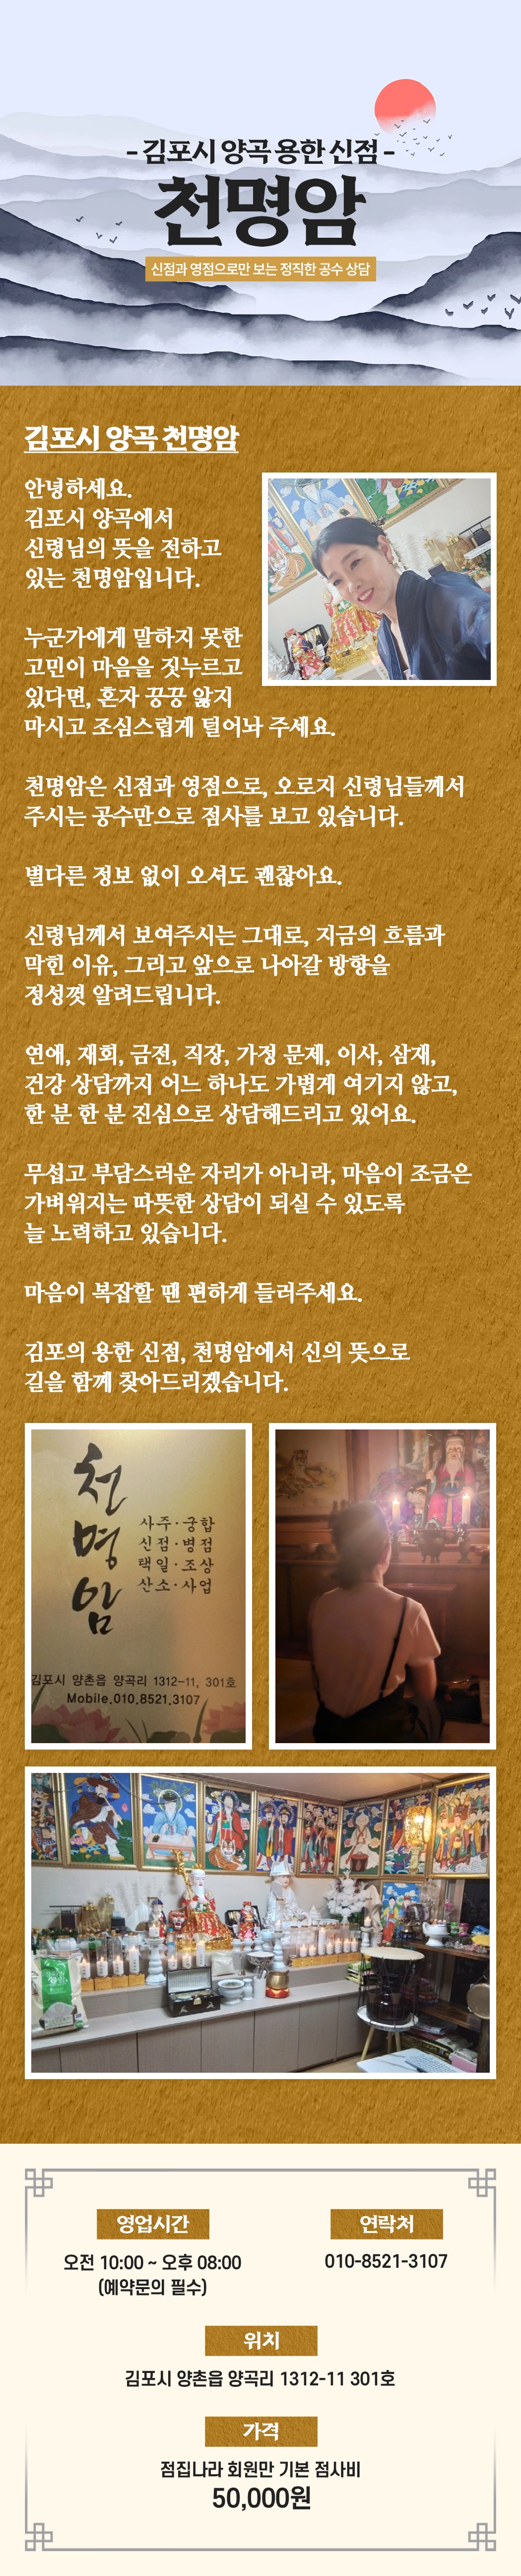 - 김포시 양곡 용한 신점 -
천명암
신점과 영점으로만 보는 정직한 공수 상담
김포시 양곡 천명암
안녕하세요.
김포시 양곡에서
신령님의 뜻을 전하고
있는 천명암입니다.
누군가에게 말하지 못한
고민이 마음을 짓누르고
있다면, 혼자 끙끙 앓지
마시고 조심스럽게 털어놔 주세요.
천명암은 신점과 영점으로, 오로지 신령님들께서
주시는 공수만으로 점사를 보고 있습니다.
별다른 정보 없이 오셔도 괜찮아요.
신령님께서 보여주시는 그대로, 지금의 흐름과
막힌 이유, 그리고 앞으로 나아갈 방향을
정성껏 알려드립니다.
연애, 재회, 금전, 직장, 가정 문제, 이사, 삼재,
건강 상담까지 어느 하나도 가볍게 여기지 않고,
한 분 한 분 진심으로 상담해드리고 있어요.
무섭고 부담스러운 자리가 아니라, 마음이 조금은
가벼워지는 따뜻한 상담이 되실 수 있도록
늘 노력하고 있습니다.
마음이 복잡할 땐 편하게 들러주세요.
김포의 용한 신점, 천명암에서 신의 뜻으로
길을 함께 찾아드리겠습니다.
천명암
사주·궁합
신점·병점
택일·조상
산소·사업
김포시 양촌읍 양곡리 1312-11, 301호
Mobile.010.8521.3107
영업시간
오전 10:00 ~ 오후 08:00
(예약문의 필수)
연락처
010-8521-3107
위치
김포시 양촌읍 양곡리 1312-11 301호
가격
점집나라 회원만 기본 점사비
50,000원